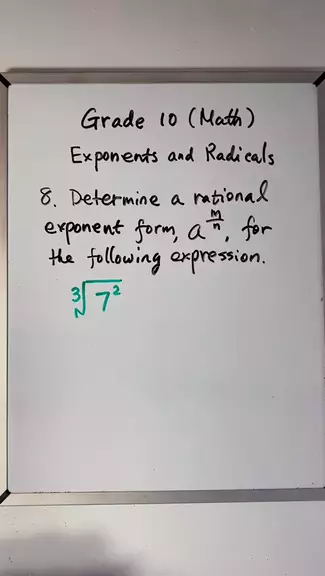 Grade 10 (Math)
Exponents and Radicals
8. Determine a rational
exponent form, a^(m/n), for
the following expression.
∛(7²)